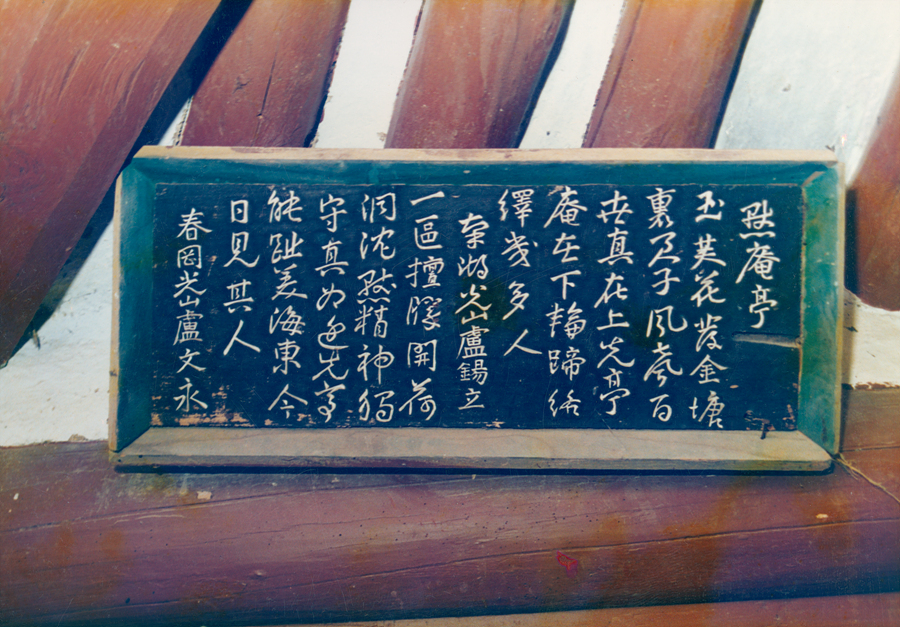 黙庵亭
玉芙花發金塘
裏君子風聲百
世真在上先亭
庵在下輪蹄絡
繹幾多人
湖光山盧錫立
一區擅勝開荷
洞沈黙精神獨
守真如先亭
能趾美海東今
日見其人
春岡光山盧文永